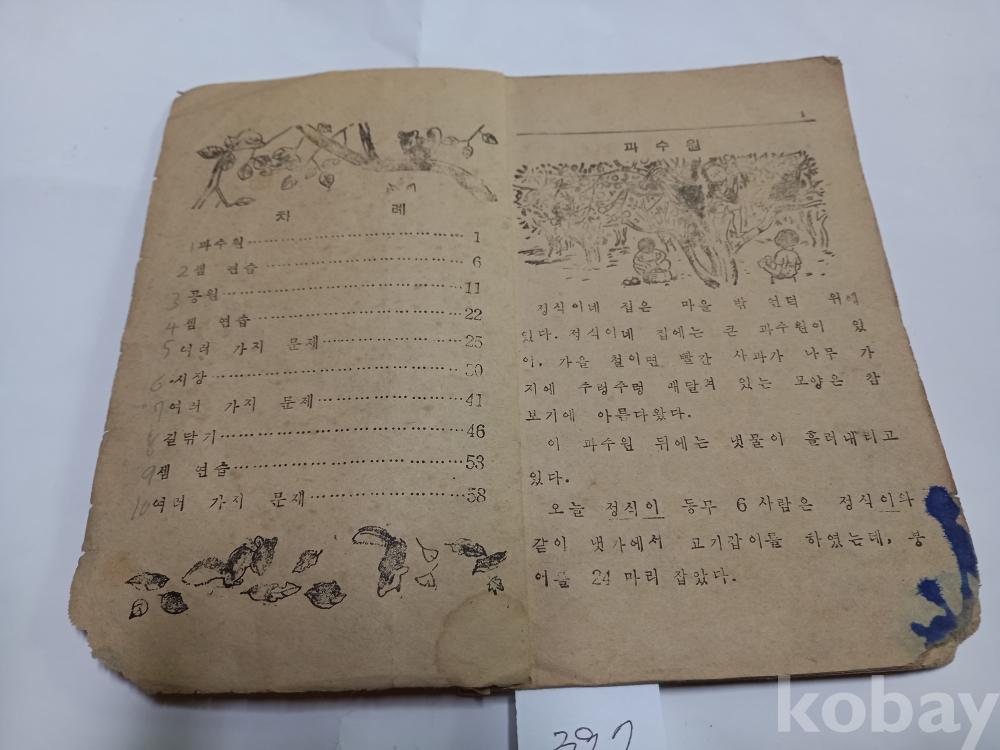 차 례
1 과수원 1
2 셈 연습 6
3 공원 11
4 셈 연습 22
5 여러 가지 문제 25
6 시장 39
7 여러 가지 문제 41
8 길닦기 46
9 셈 연습 53
10 여러 가지 문제 58
1
과수원
정식이네 집은 마을 밖 언덕 위에
있다. 정식이네 집에는 큰 과수원이 있
어, 가을 철이면 빨간 사과가 나무 가
지에 주렁주렁 매달져 있는 모양은 참
보기에 아름다왔다.
이 과수원 뒤에는 냇물이 흘러내리고
있다.
오늘 정식이 동무 6 사람은 정식이와
같이 냇가에서 고기잡이를 하였는데, 붕
어를 24 마리 잡았다.
397
kobay